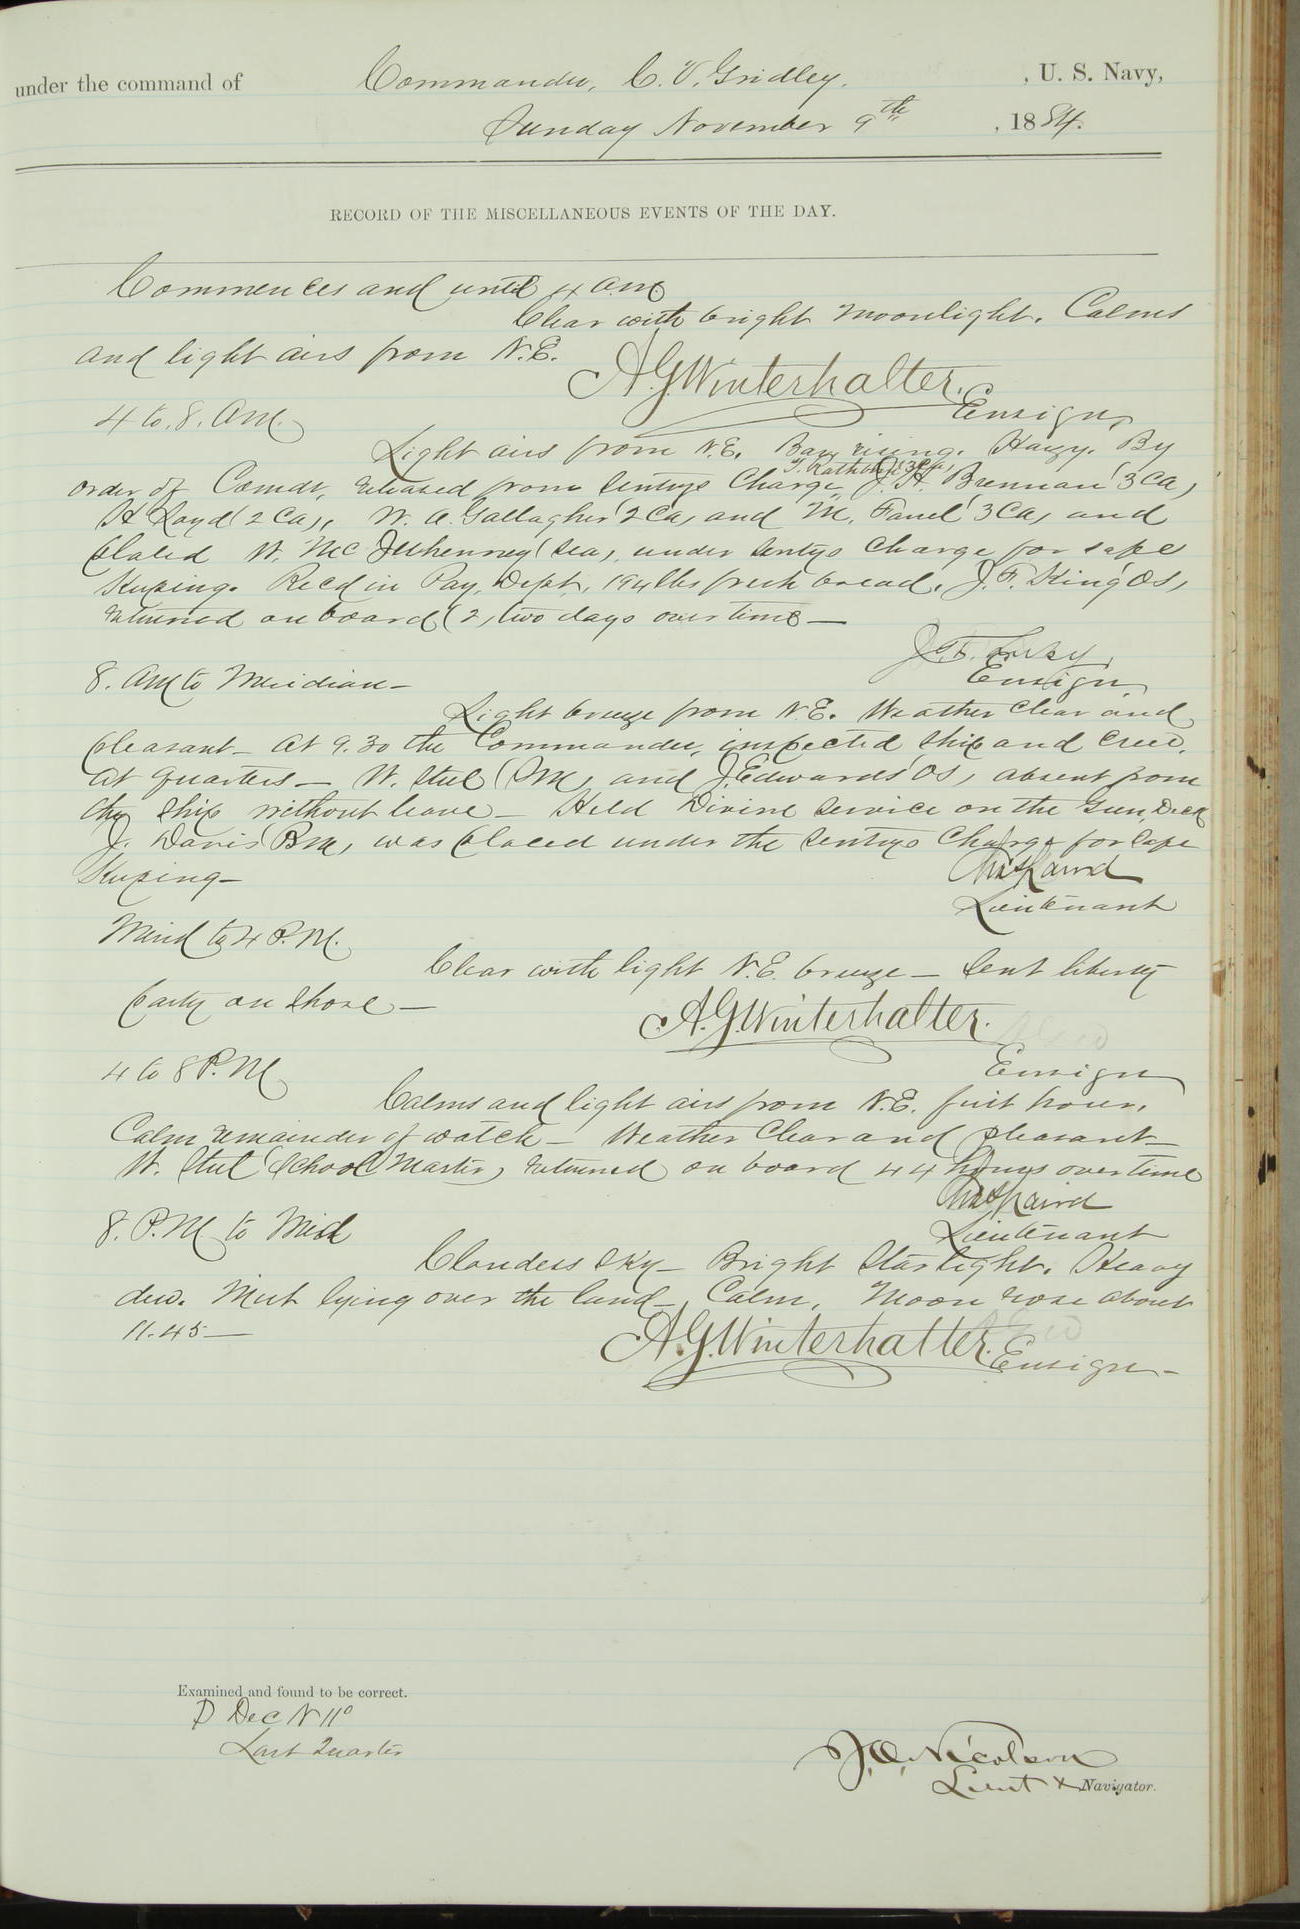 under the command of Commander, C. V. Gridley. , U. S. Navy,
Sunday November 9th , 1884.
RECORD OF THE MISCELLANEOUS EVENTS OF THE DAY.
Commences and until 4 a.m.
Clear with bright moonlight. Calms
and light airs from N.E.
A.G. Winterhalter.
Ensign
4 to 8. A.M.
Light airs from N.E. Bar. rising. Hazy. By
order of Comdr. released from Sentrys Charge J. H. Brennan (3 Ca)
H. Loyd (2 Ca), W. A. Gallagher (2 Ca) and M. (3 Ca) and
placed W. Mc (Sea) under Sentrys Charge for safe
Keeping. Recd in Pay. Dept. 194 lbs fresh bread. J. F. King (OS)
returned on board (2) two days over time —
Ensign
8. AM to Meridian —
Light breeze from N.E. Weather clear and
pleasant — At 9.30 the Commander, inspected ship and crew,
at quarters — W. Steel (SM) and J. Edwards (OS) absent from
the ship without leave — Held Divine Service on the Gun Deck
J. Davis (Bm) was placed under the Sentrys Charge for safe
Keeping —
Lieutenant
Merid to 4 P.M.
Clear with light N.E. breeze — Sent liberty
party on shore —
A.G. Winterhalter.
Ensign
4 to 8 P.M.
Calms and light airs from N.E. first hour.
Calm remainder of watch — Weather clear and pleasant —
W. Steel (School Master) returned on board 44 hours over time
Lieutenant
8. P.M. to Mid
Cloudless sky — Bright starlight. Heavy
dew. Mist lying over the land — Calm. Moon rose about
11.45 —
A.G. Winterhalter.
Ensign —
Examined and found to be correct.
D Dec N 11°
Last Quarter
J.O. Nicolson
Lieut & Navigator.